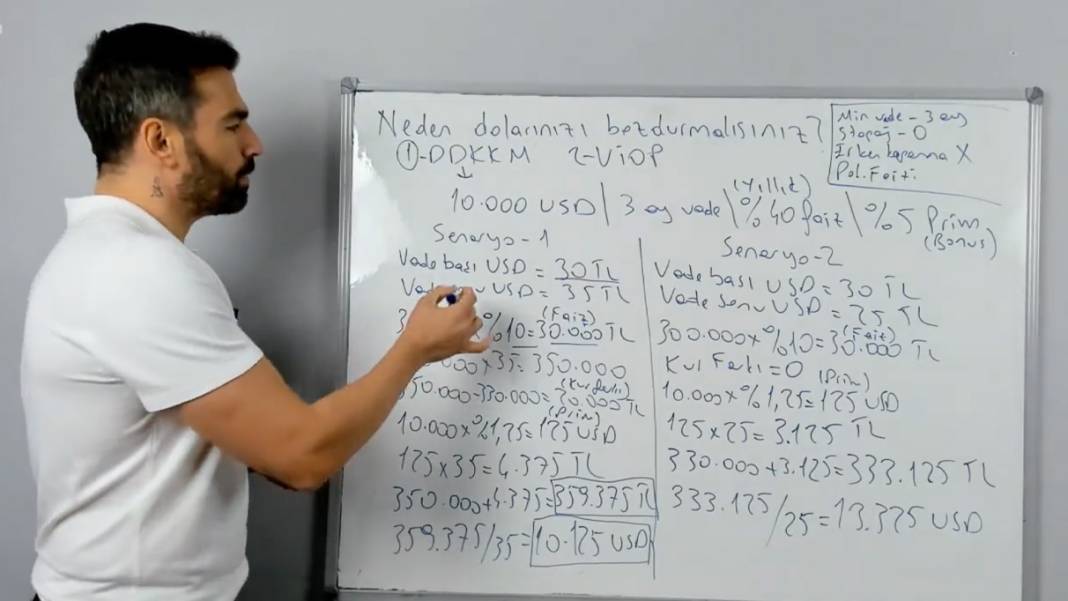 Neden dolarınızı bozdurmalısınız?
Min vade - 3 ay
Stopaj - 0
Erken kapama X
Pol. Faizi
①-DDKKM 2-VİOP
↓
10.000 USD | 3 ay vade \ %40 faiz \ %5 Prim
(Yıllık)
(Bonus)
Senaryo-1
Vade başı USD = 30 TL
USD = 35 TL
%10=30.000 TL
(Faiz)
x35=350.000
350.000-330.000=20.000 TL
(Kur farkı)
10.000x%1,25=125 USD
(Prim)
125x35=4.375 TL
350.000+4.375=359.375 TL
359.375/35=10.125 USD
Senaryo-2
Vade başı USD = 30 TL
Vade sonu USD = 25 TL
300.000x%10=30.000 TL
(Faiz)
Kur Farkı=0
10.000x%1,25=125 USD
(Prim)
125x25=3.125 TL
330.000+3.125=333.125 TL
333.125/25=13.325 USD